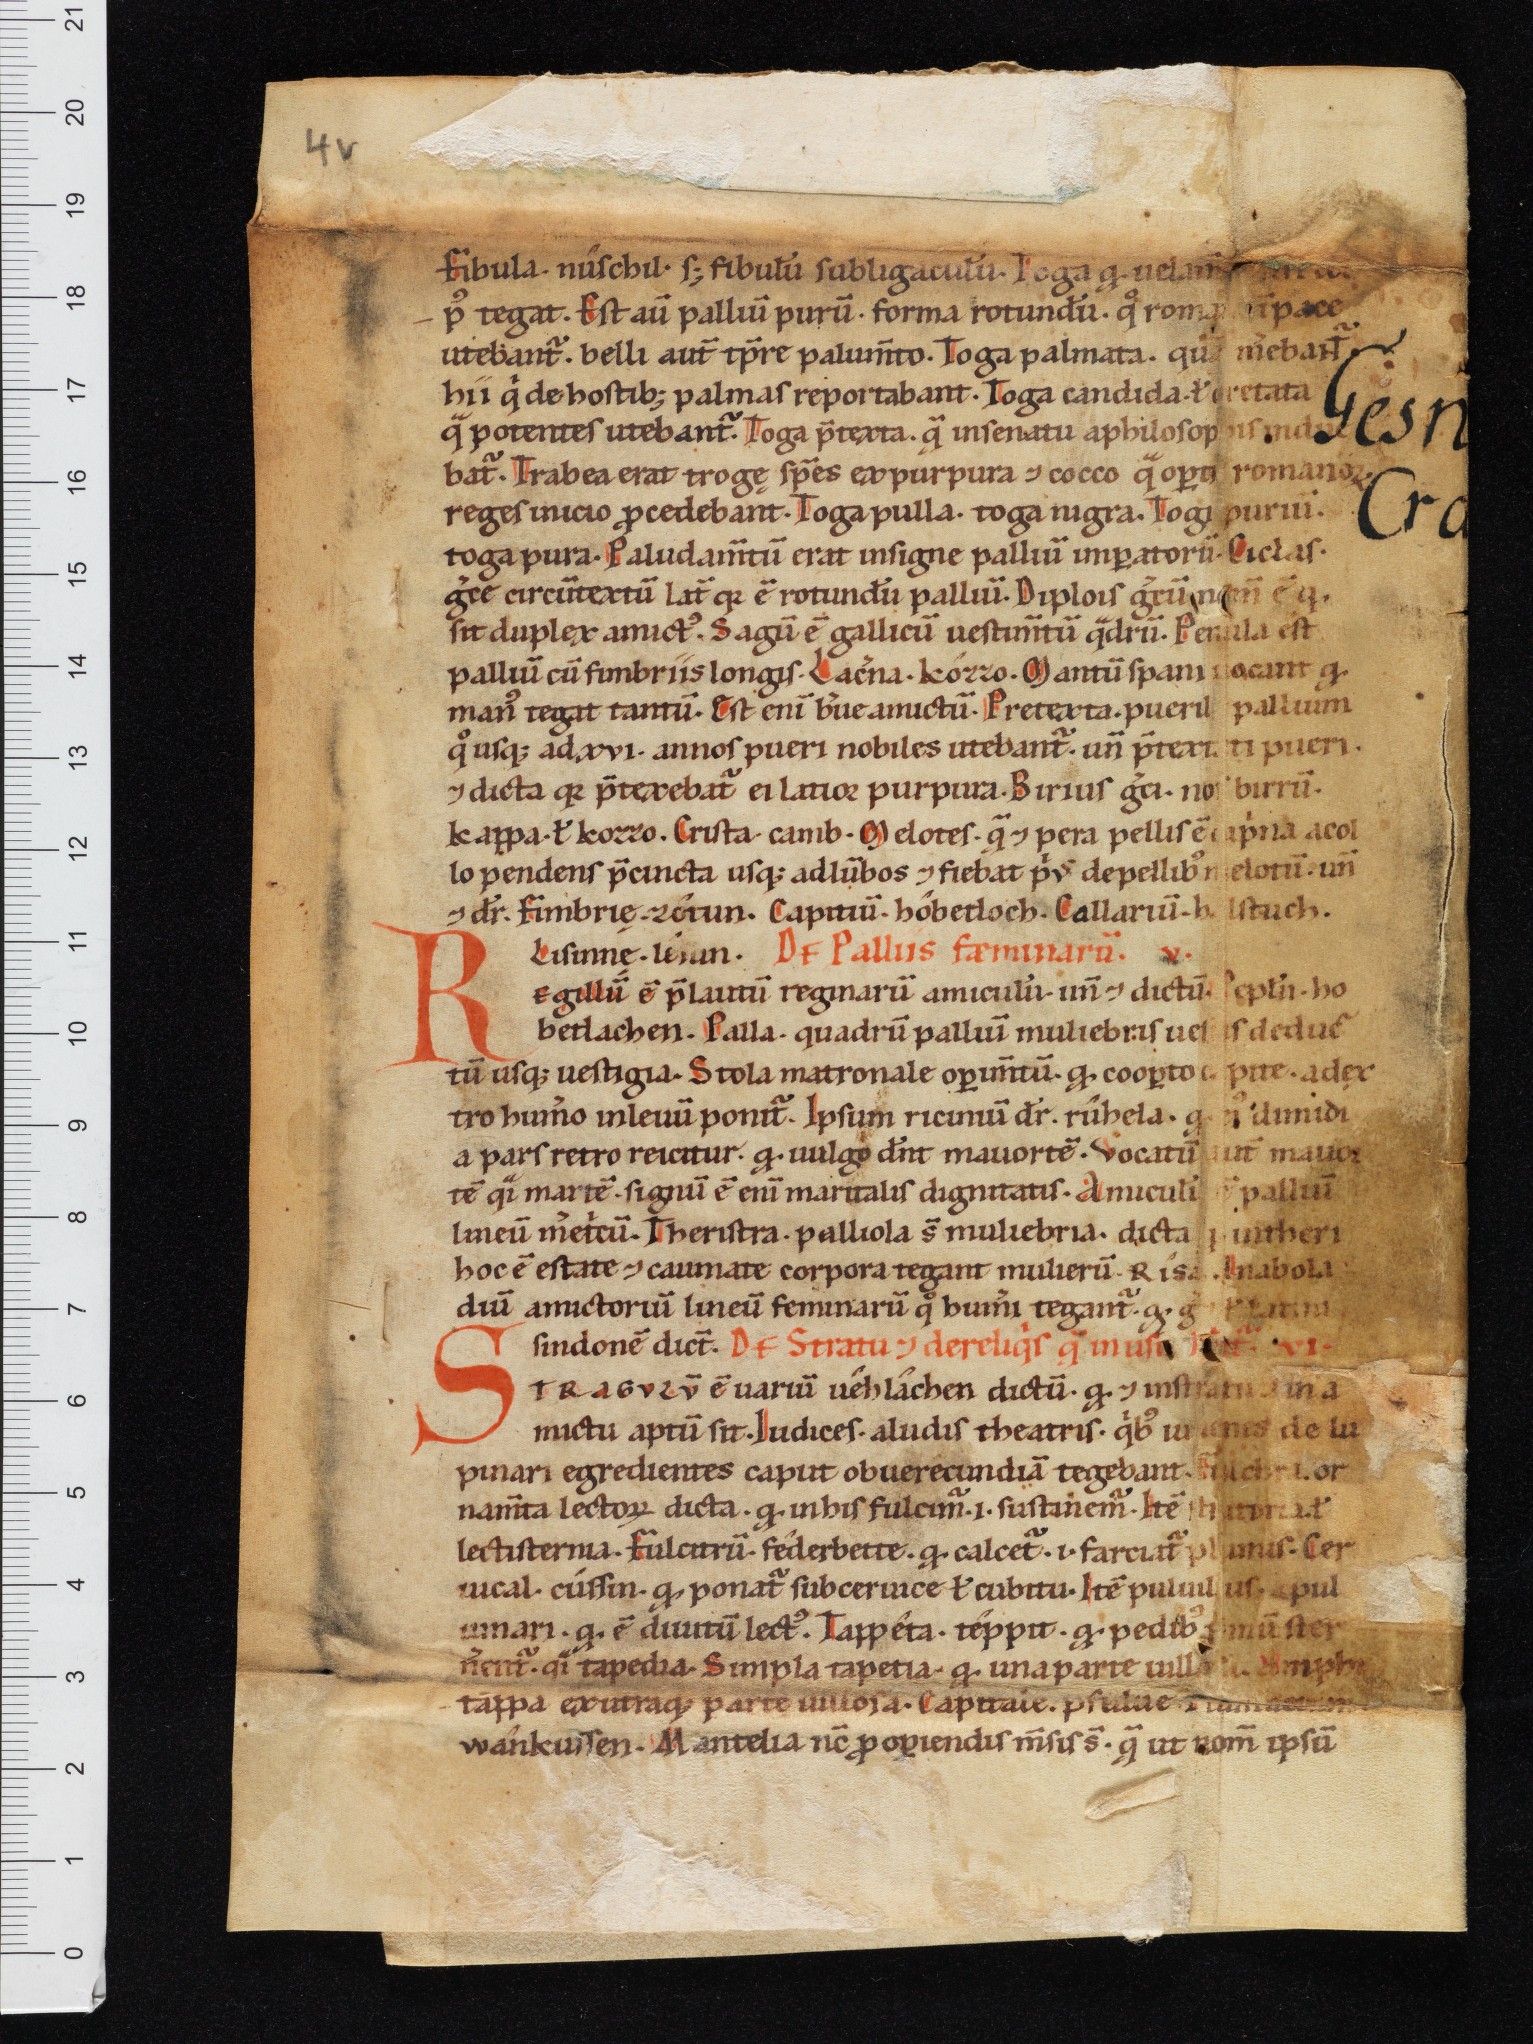 4v
Fibula· núschil· s; fibulū subligaculū· Toga q̨· uelam
p᷒ tegat· Est aū palliū purū· forma rotundū· qͦ rom pace
utebant᷑· belli aut̄ tp̄re palum̄to· Toga palmata· qua m̄ebant᷑·
hii q̍ de hostib; palmas reportabant· Toga candida· ł cretata
q̄ potentes utebant᷑· Toga p̄texta· q̄ insenatu aphilosophis indue
bat᷑· Trabea erat trogę sp̄es expurpura ⁊ cocco q̄ opti romanoꝝ
reges inicio ꝓcedebant· Toga pulla· toga nigra· Togi puriū·
toga pura· Paludam̄tū erat insigne palliū imꝑatorū· Ciclas·
gͬce circūtextū lat̄ qꝛ ē rotundū palliū· Diplois gͬcū nom̄ ē q̨·
sit duplex amict᷒· Sagū ē gallicū uestim̄tū q̄drū· Penula est
palliū cū fimbriis longis· Lac̄na· kózzo· Mantū spani uocant q̨·
man᷒ tegat tantū· Est enī bͬue amictū· Pretexta· pueril pallium
qͦ usq; ad xvi· annos pueri nobiles utebant᷑· un̄ p̄textati pueri·
⁊ dicta qꝛ p̄texebat᷑ ei latioꝛ purpura· Birius gͬci· no birrū·
kappa· ł kozzo· Crista· camb· Melotes· q̄ ⁊ pera pellis ē caprina acol
lo pendens p̄cincta usq; ad lūbos ⁊ fiebat p̍ꝰ depellib᷒ melotū· un̄
⁊ dr̄· Fimbrię· zótun· Capitiū· hóbetloch· Collariū· halstuch·
Lisinnę· lénun· De Palliis fæminarū· v·
Regillū ē p̄lautū reginarū amiculū· un̄ ⁊ dictū· Peplū· ho
betlachen· Palla· quadrū palliū muliebris uestis deduc̄
tū usq; uestigia· Stola matronale opꝑim̄tū· q̨· cooꝑto capite· adex
tro hum̄o inleuū ponit᷑· Ipsum riciniū dr̄· rúhela· q̨· ei᷒ dimidi
a pars retro reicitur· q̨· uulgo dn̄t mauortē· Vocatū aut̄ mauoꝛ
tē q̄i martē· signū ē enī maritalis dignitatis· Amiculū ē palliū
lineū m̄et̍cū· Theristra· palliola s̄ muliebria· dicta q intheri
hoc ē estate ⁊ caumate corpora tegant mulierū· RISA· Anabola
diū amictoriū lineū feminarū qͦ hum̄i tegant᷑· q̨· gͬ
sindonē dict̄· De Stratu ⁊ dereliq̍s q̄ inusu · vi·
STRAGVLV̄ ē uariū uéhláchen dictū· q̨· ⁊ instratu ⁊ in a
mictu aptū sit· Iudices· aludis theatris· q̍b᷒ iuuenes de lu
pinari egredientes caput obuerecundiā tegebant· Fulchra· or
nam̄ta lectoꝝ dicta· q̨· inhis fulcim᷑· i· sustinem᷑· Itē stratoria· ł
lectisternia· Fulcitrū· féderbette· q̨· calcet᷑· i· farciat᷑ plumis· Cer
uical· cússin· q̨· ponat᷑ subceruice ł cubitu· Itē puluillus· apul
uinari· q̨· ē diuitū lect᷒· Tappéta· téppit· q̨· pedib᷒ p̍mū ster
n̄ent᷑· q̄i tapedia· Simpla tapetia· q̨· una parte uillosa· Amphi
tappa exutraq; parte uillosa· Capitale· pfulue·
wánkussen· Mantelia nc̄ ꝓ oꝑiendis m̄sis s̄· q̄ ut nom̄ ipsū
Gesn
Cra